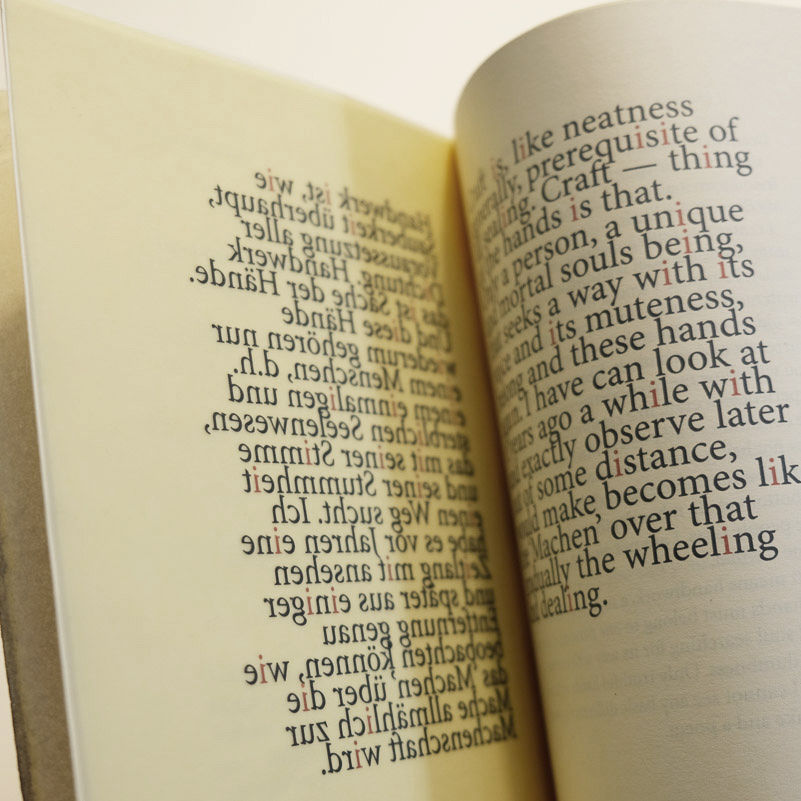 Handwerk ist, wie
Sauberkeit überhaupt,
Voraussetzung aller
Dichtung. Handwerk
das ist Sache der Hände.
Und diese Hände
wiederum gehören nur
einem Menschen, d.h.
einem einmaligen und
sterblichen Seelenwesen,
das mit seiner Stimme
und seiner Stummheit
einen Weg sucht. Ich
habe es vor Jahren eine
Zeitlang mit ansehen
und später aus einiger
Entfernung genau
beobachten können, wie
das 'Machen' über die
Mache allmählich zur
Machenschaft wird.
is, like neatness
prerequisite of
Craft — thing
hands is that.
a person, a unique
mortal souls being,
seeks a way with its
and its muteness,
and these hands
I have can look at
years ago a while with
exactly observe later
of some distance,
make becomes lik
'Machen' over that
the wheeling
dealing.